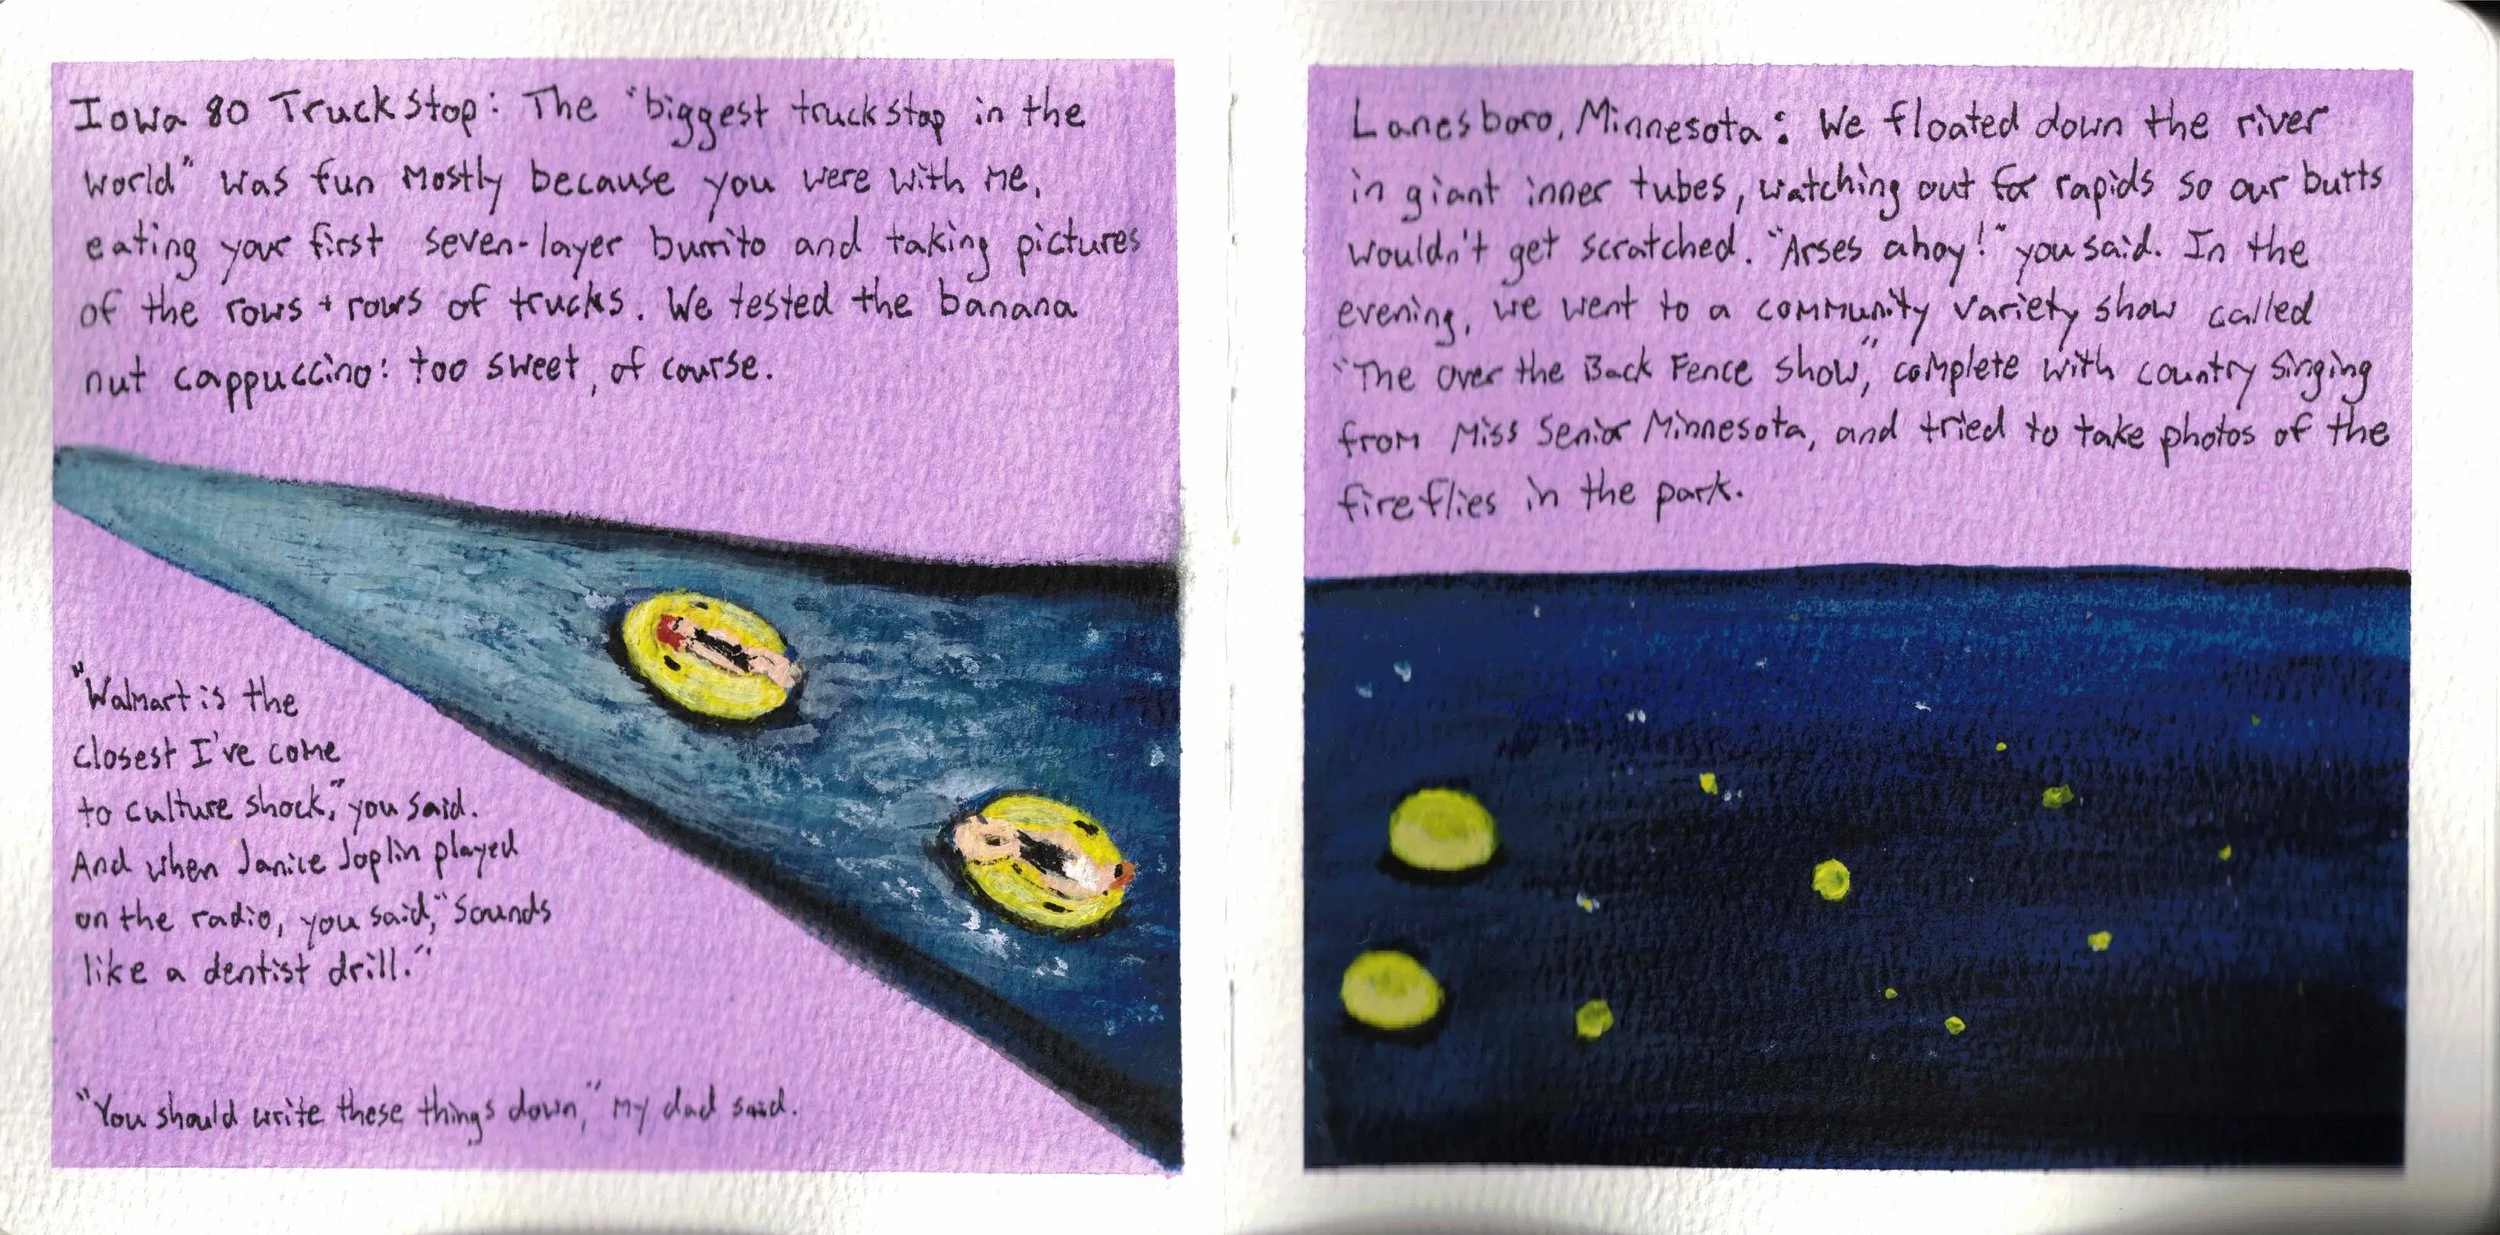 Iowa 80 Truckstop: The "biggest truckstop in the
world" was fun mostly because you were with me,
eating your first seven-layer burrito and taking pictures
of the rows + rows of trucks. We tested the banana
nut cappuccino: too sweet, of course.
"Walmart is the
closest I've come
to culture shock," you said.
And when Janice Joplin played
on the radio, you said, "Sounds
like a dentist drill."
"You should write these things down," my dad said.
Lanesboro, Minnesota: We floated down the river
in giant inner tubes, watching out for rapids so our butts
wouldn't get scratched. "Arses ahoy!" you said. In the
evening, we went to a community variety show called
"The Over the Back Fence Show," complete with country singing
from Miss Senior Minnesota, and tried to take photos of the
fireflies in the park.